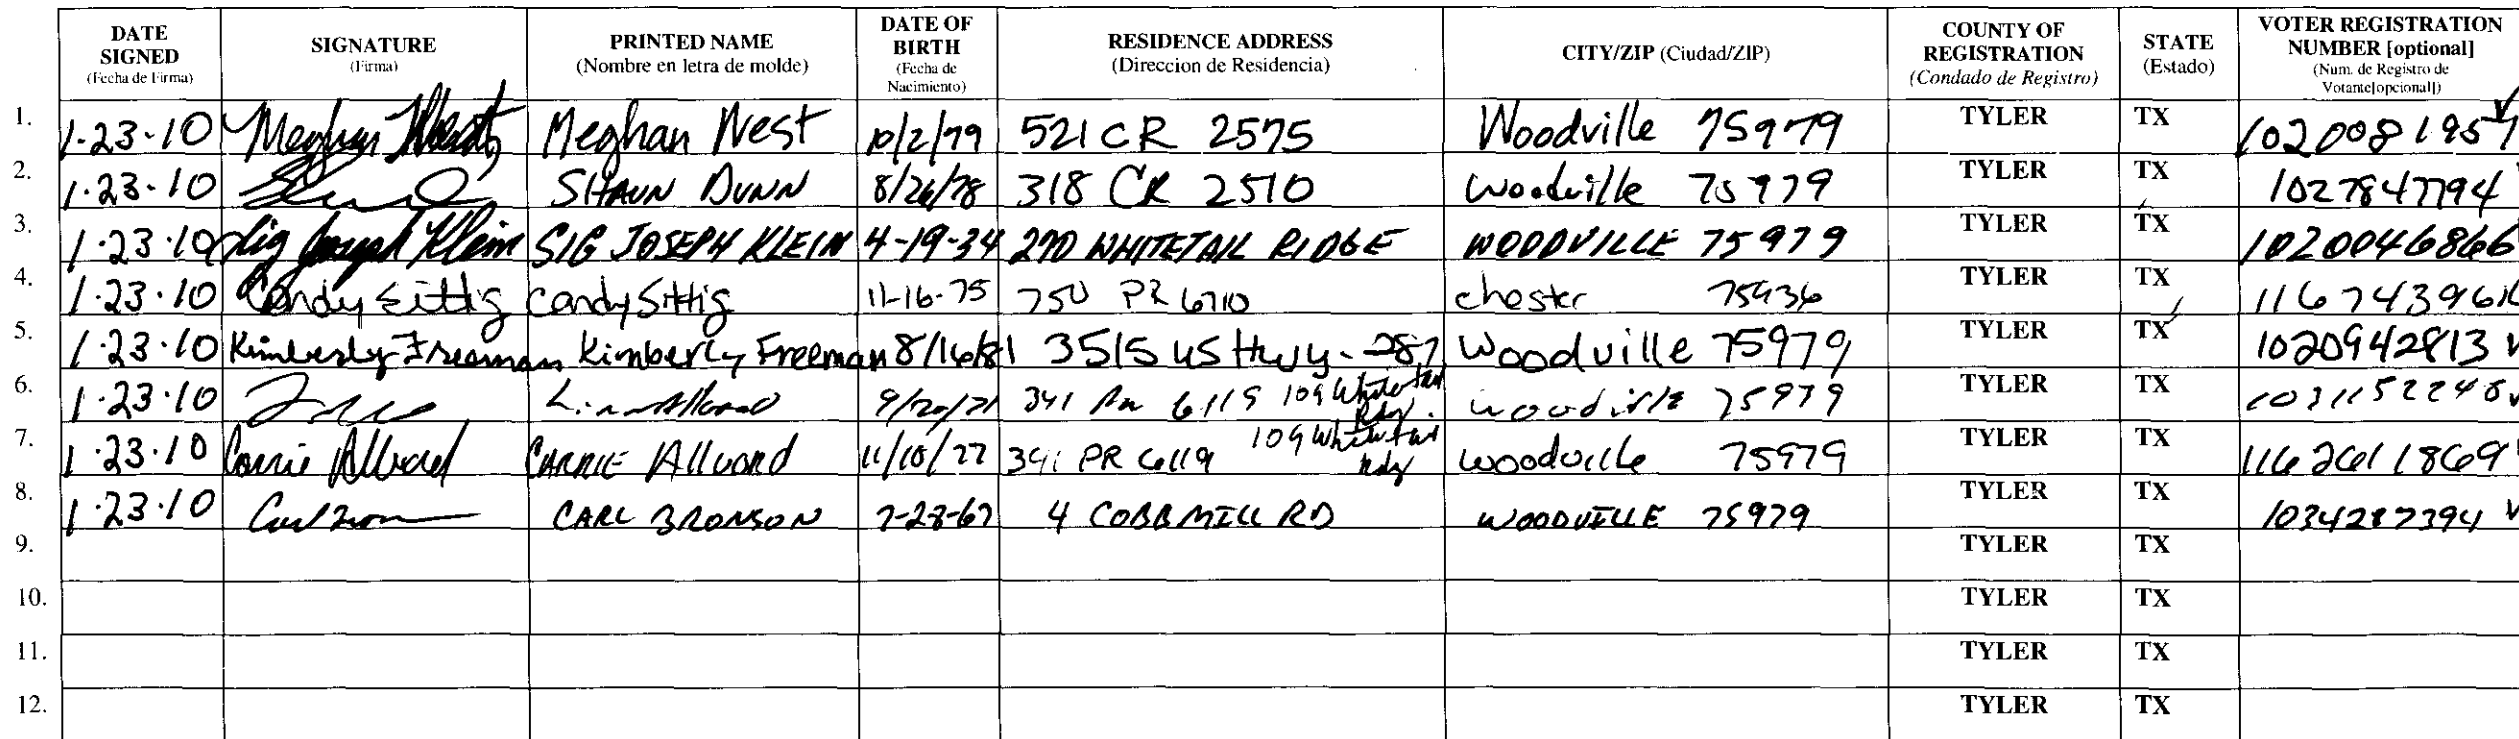 DATE SIGNED (Fecha de Firma) SIGNATURE (Firma) PRINTED NAME (Nombre en letra de molde) DATE OF BIRTH (Fecha de Nacimiento) RESIDENCE ADDRESS (Direccion de Residencia) CITY/ZIP (Ciudad/ZIP) COUNTY OF REGISTRATION (Condado de Registro) STATE (Estado) VOTER REGISTRATION NUMBER [optional] (Num. de Registro de Votante[opcional])
1. 1-23-10 Meghan West Meghan West 10/2/79 521 CR 2575 Woodville 75979 TYLER TX 1020081957
2. 1-23-10 SHAUN DUNN 8/26/78 318 CR 2510 Woodville 75979 TYLER TX 1027847794
3. 1-23-10 Sig Joseph Klein SIG JOSEPH KLEIN 4-19-34 270 WHITETAIL RIDGE WOODVILLE 75979 TYLER TX 1020046866
4. 1-23-10 Candy Sittig Candy Sittig 11-16-75 750 PR 6710 chester 75936 TYLER TX 1167439616
5. 1-23-10 Kimberly Freeman Kimberly Freeman 8/16/81 3515 US Hwy-287 Woodville 75979 TYLER TX 1020942813
6. 1-23-10 9/20/71 341 6119 109 Whitetail Rdg. woodville 75979 TYLER TX
7. 1-23-10 Carrie Allvord CARRIE Allvord 341 PR 6119 109 Whitetail Rdg woodville 75979 TYLER TX 1162611869
8. 1-23-10 CARL BRONSON 7-28-67 4 COBB MILL RD WOODVILLE 75979 TYLER TX 1034287394
9. TYLER TX
10. TYLER TX
11. TYLER TX
12. TYLER TX